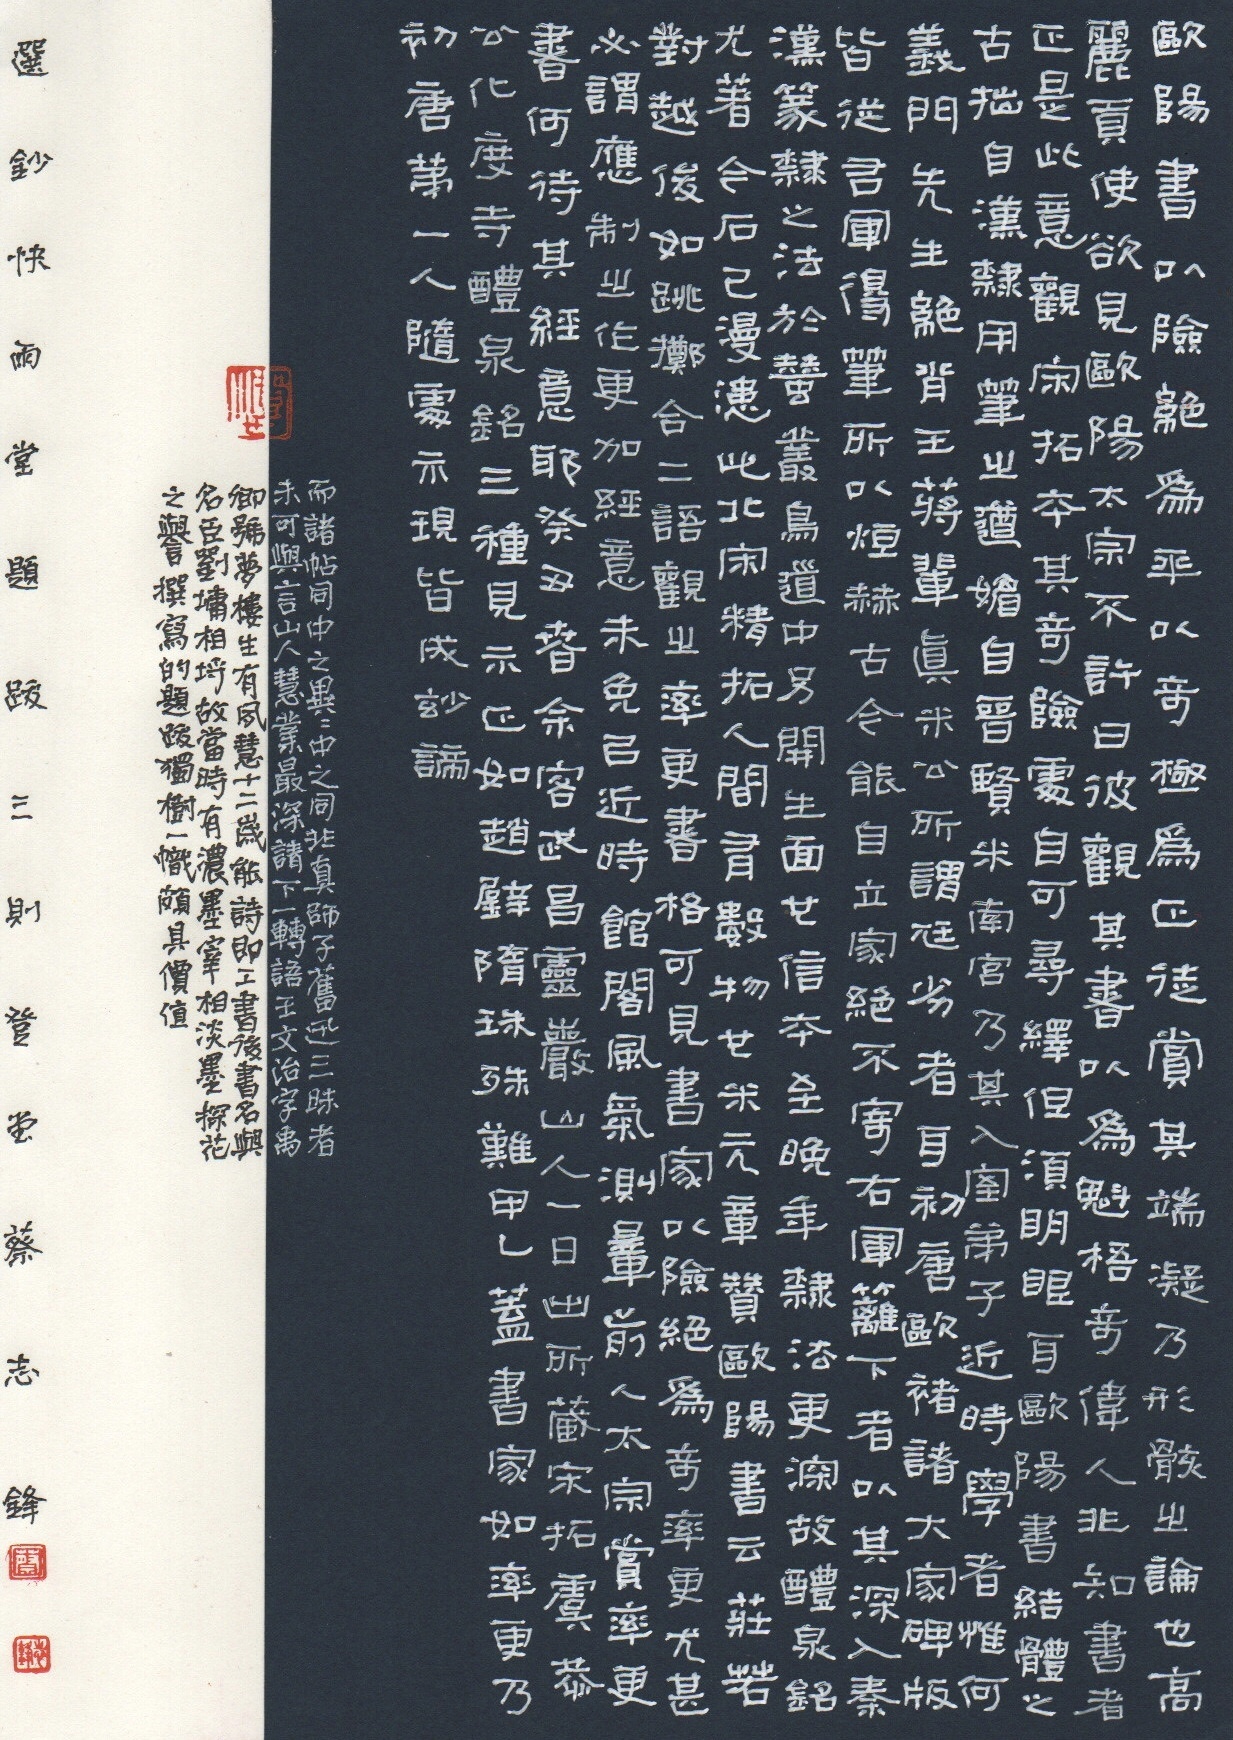 歐陽書以險絕為平以奇極為正徒賞其端凝乃形骸之論也高
麗貢使欲見歐陽太宗不許曰彼觀其書以為魁梧奇偉人非知書者
正是此意觀宋拓本其奇險處自可尋繹但須明眼耳歐陽書結體之
古拙自漢隸用筆之遒媚自晉賢米南宮乃其入室弟子近時學者惟何
義門先生絕背王蔣輩真米公所謂尪劣者耳初唐歐褚諸大家碑版
皆從右軍得筆所以烜赫古今能自立家絕不寄右軍籬下者以其深入秦
漢篆隸之法於蠶叢鳥道中另開生面也信本至晚年隸法更深故醴泉銘
尤著今石已漫漶此北宋精拓人間有數物也米元章贊歐陽書云莊若
對越俊如跳擲合二語觀之率更書格可見書家以險絕為奇率更尤甚
必謂應制之作更加經意未免已近時館閣風氣測量前人太宗賞率更
書何待其經意耶癸丑春余客武昌靈巖山人一日出所藏宋拓虞恭
公化度寺醴泉銘三種見示正如趙璧隋珠殊難甲乙蓋書家如率更乃
初唐第一人隨處示現皆成妙諦
而諸帖同中之異〻中之同非真師子奮迅三昧者
未可與言山人慧業最深請下一轉語王文治字禹
卿號夢樓生有夙慧十二歲能詩即工書後書名與
名臣劉墉相埒故當時有濃墨宰相淡墨探花
之譽撰寫的題跋獨樹一幟頗具價值
選鈔快雨堂題跋三則登堂蔡志鋒